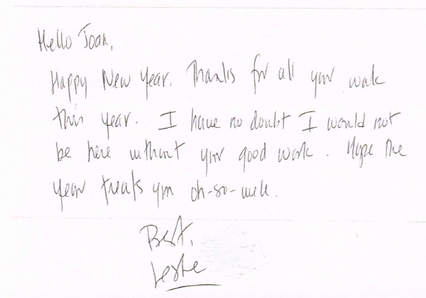 Hello Joan,
Happy New Year. Thanks for all your work
this year. I have no doubt I would not
be here without your good work. Hope the
year treats you oh-so-well.
Best,
Leslie